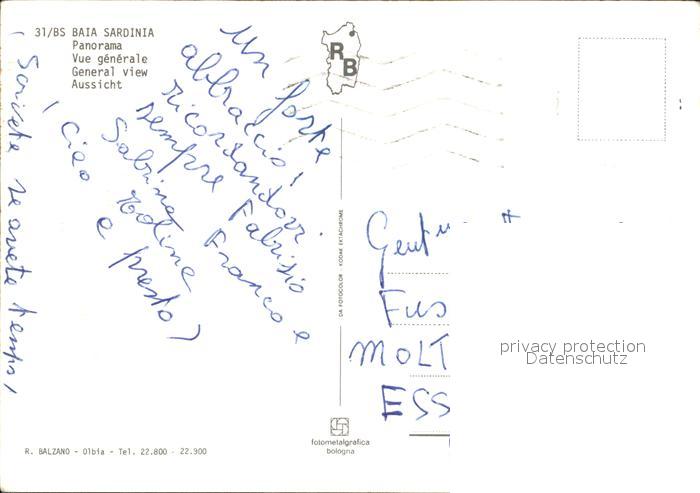 31/BS BAIA SARDINIA
Panorama
Vue générale
General view
Aussicht
RB
Un forte
abbraccio!
ricordandovi
sempre Fabrizio
Sabrina Franco e
! Ciao
e presto)
Scrivete se avete tempo,
DA FOTOCOLOR KODAK EKTACHROME
Gent
FUS
MOLT
ESS
privacy protection
Datenschutz
fotometalgrafica
bologna
R. BALZANO - Olbia - Tel. 22.800 - 22.900